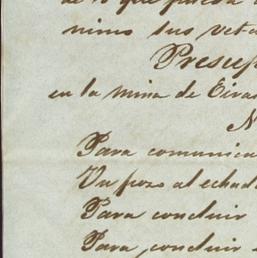 de lo que pueda
nimo sus veta
Presup
en la mina de
N
Para comunica
Un pozo al echad
Para concluir
Para concluir